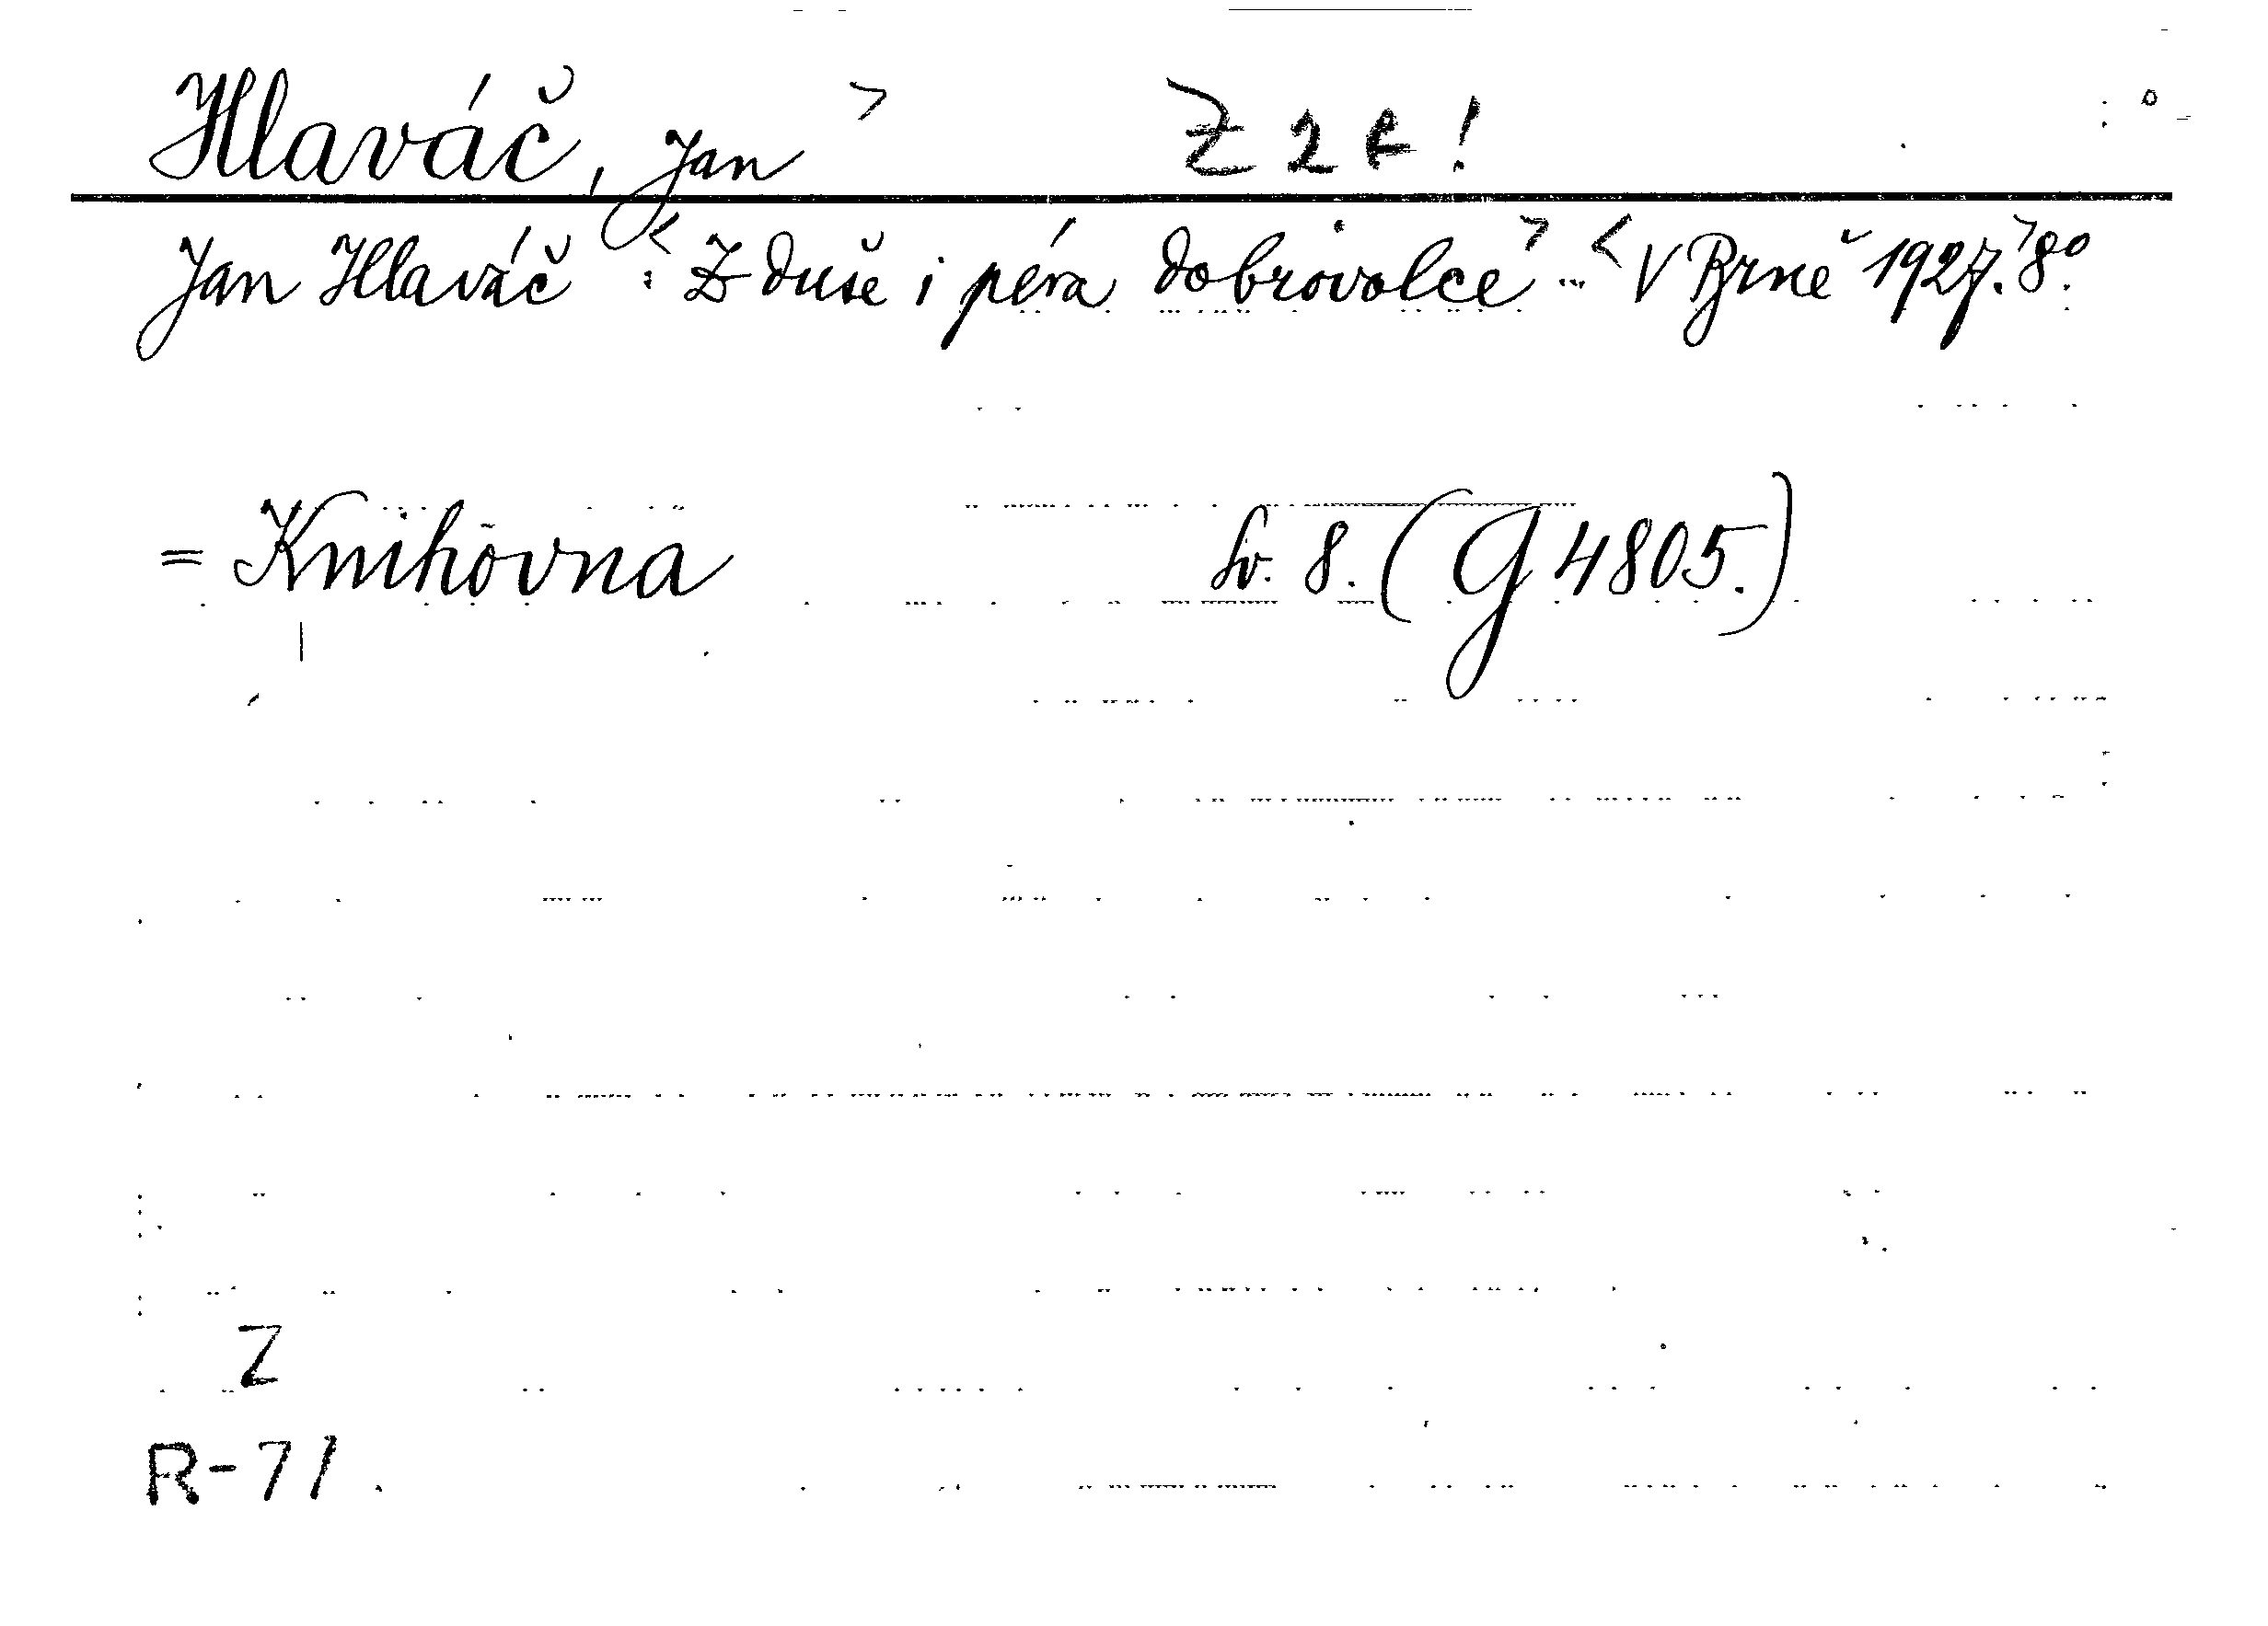 Hlaváč, Jan > Z 2 R !
Jan Hlaváč : < Z duše i péra dobrovolce > ... < V Brně 1927. > 8°.
= Knihovna sv. 8. (G 4805.)
Z
R-71